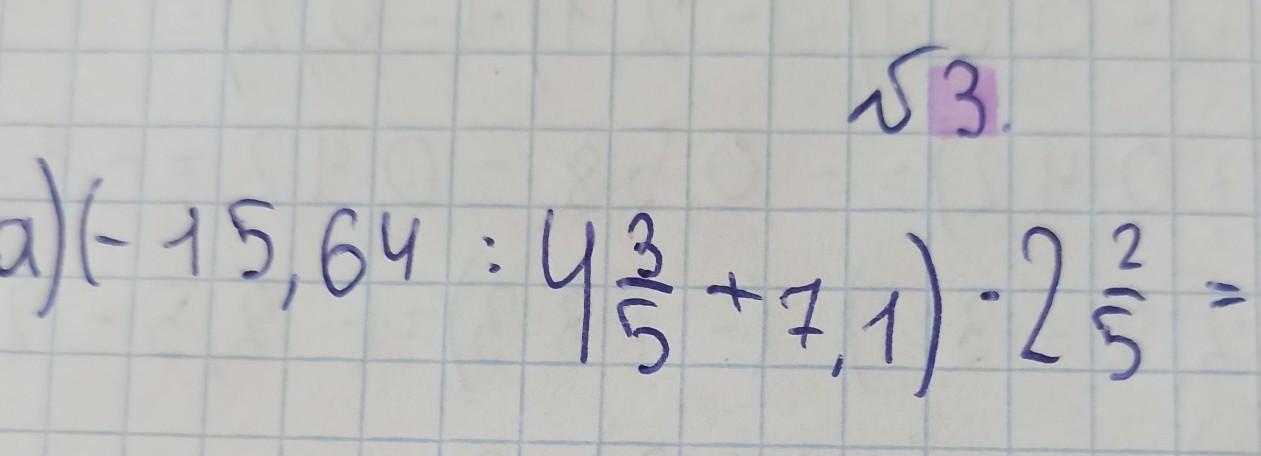 №3.
а) (- 15,64 : 4 3/5 + 7,1) · 2 2/5 =